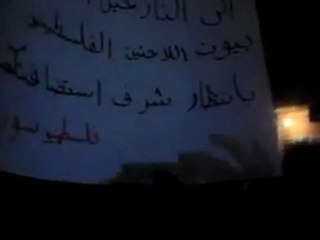 الى النازحين
بيوت اللاجئين الفلسطينيين
بانتظار شرف استضافتكم